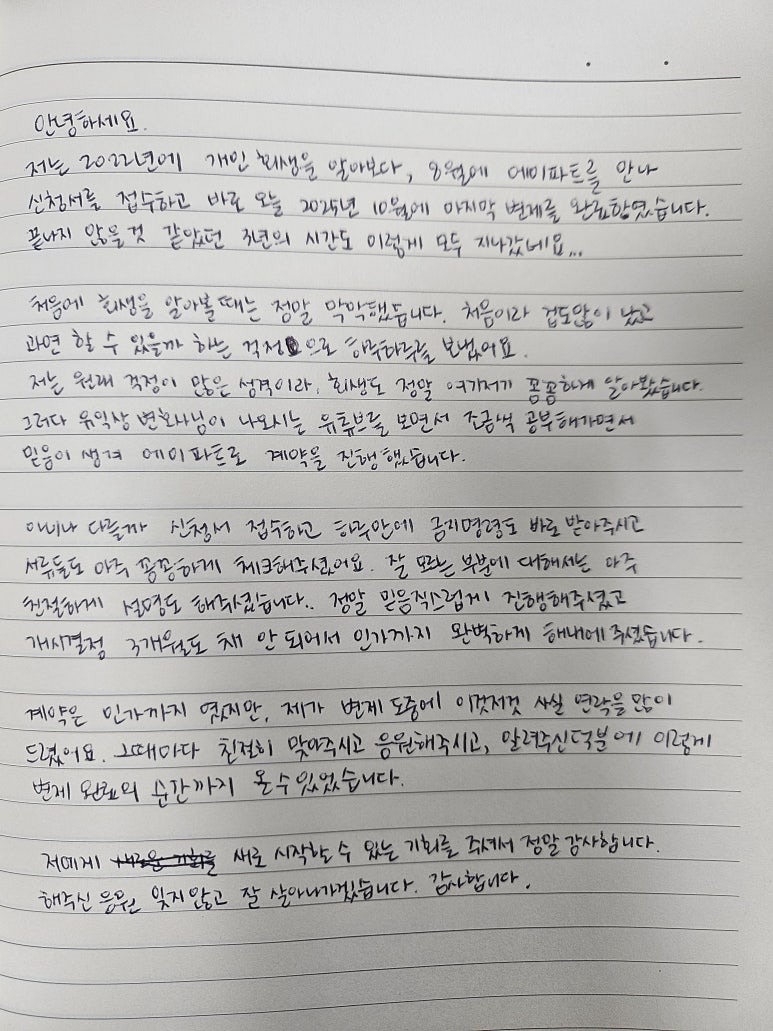 안녕하세요.
저는 2022년에 개인 회생을 알아보다, 8월에 에이파트를 만나
신청서를 접수하고 바로 오늘 2025년 10월에 마지막 변제를 완료하였습니다.
끝나지 않을것 같았던 3년의 시간도 이렇게 모두 지나갔네요...
처음에 회생을 알아볼때는 정말 막막했습니다. 처음이라 겁도많이 났고
과연 할 수 있을까 하는 걱정으로 하루하루를 보냈어요.
저는 원래 걱정이 많은 성격이라, 회생도 정말 여기저기 꼼꼼하게 알아봤습니다.
그러다 유익상 변호사님이 나오시는 유튜브를 보면서 조금씩 공부해가면서
믿음이 생겨 에이파트로 계약을 진행했습니다.
아니나 다를까 신청서 접수하고 하루안에 금지명령도 바로 받아주시고
서류들도 아주 꼼꼼하게 체크해주셨어요. 잘 모르는 부분에 대해서는 아주
친절하게 설명도 해주셨습니다.. 정말 믿음직스럽게 진행해주셨고
개시결정 3개월도 채 안 되어서 인가까지 완벽하게 해내어주셨습니다.
계약은 인가까지 였지만, 제가 변제 도중에 이것저것 사실 연락을 많이
드렸어요. 그때마다 친절히 맞아주시고 응원해주시고, 알려주신덕분에 이렇게
변제 완료의 순간까지 올수있었습니다.
저에게 새로운 기회를 새로 시작할 수 있는 기회를 주셔서 정말 감사합니다.
해주신 응원 잊지않고 잘 살아나가겠습니다. 감사합니다.